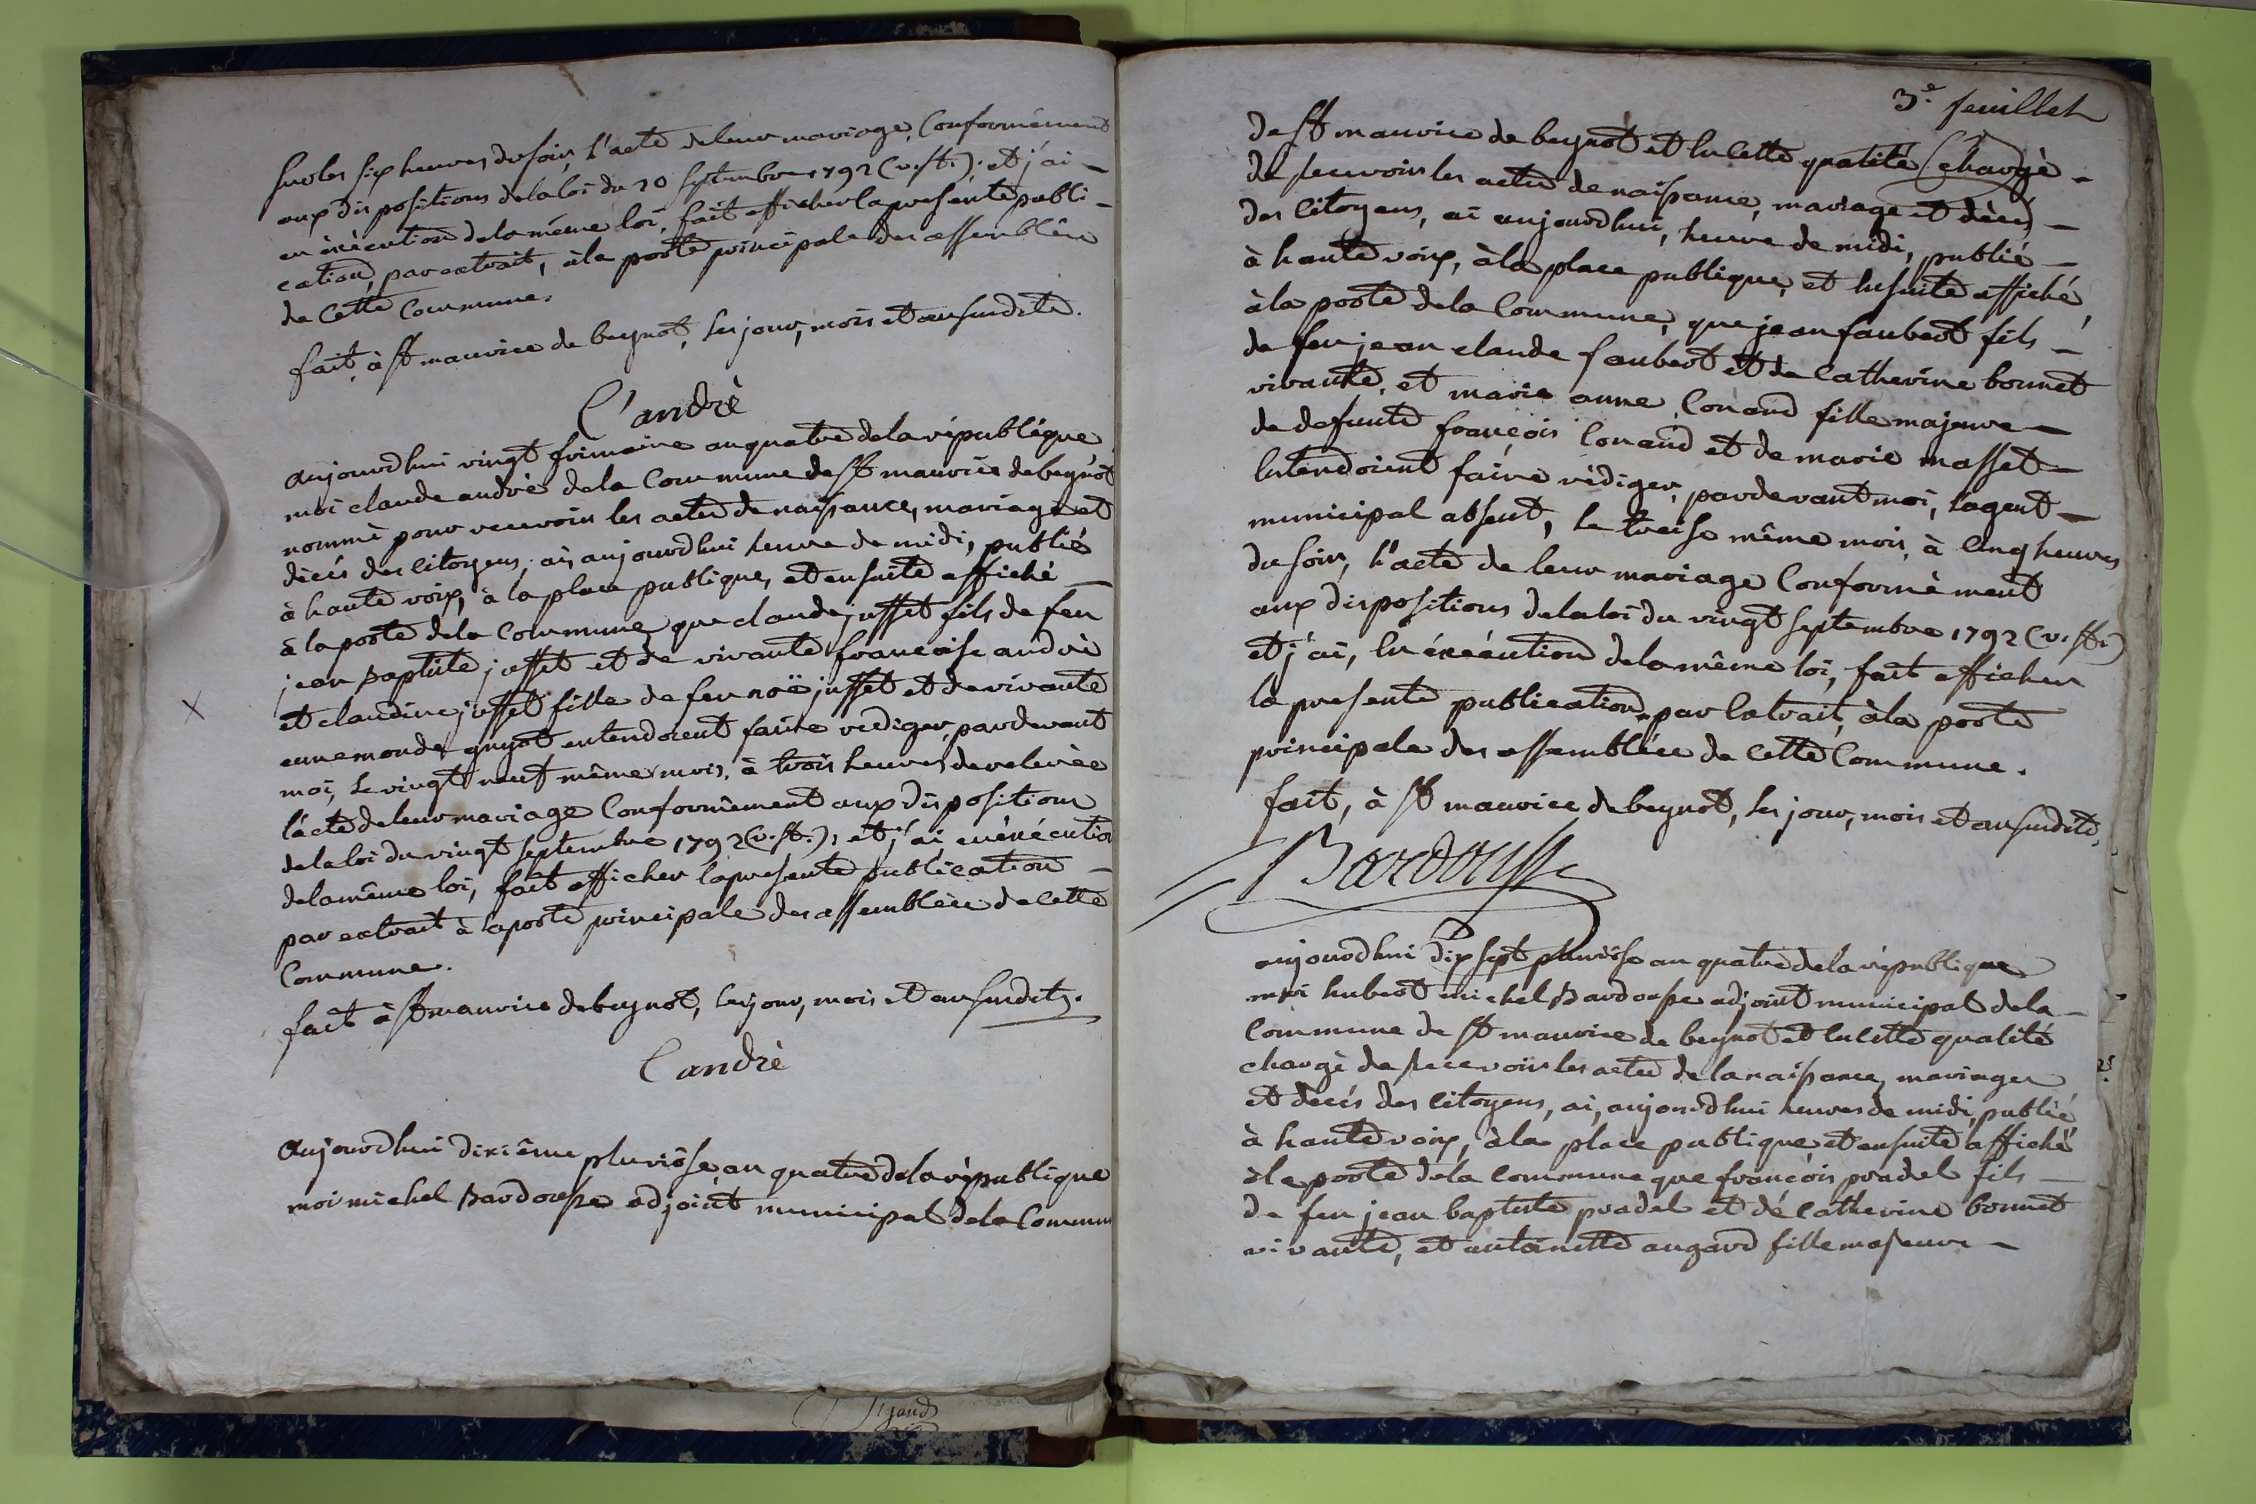 sur les six heures du soir, l'acte de leur mariage, Conformément
aux dispositions de la loi du 20 septembre 1792 (v. st.); et j'ai —
en éxécution de la même loi, fait afficher la présente publi —
cation, par extrait, à la porte principale des assemblées
de Cette Commune.
fait, à st maurice de beynot, les jour, mois et an susdits.
C' andrè
aujourdhui vingt frimaire an quatre de la république
moi claude andrè de la Commune de St maurice de beynot
nommè pour recevoir les actes de naissance, mariage et
décès des Citoyens, ai, aujourdhui heure de midi, publié
à haute voix, à la place publique, et ensuite affiché —
à la porte de la Commune que claude jusset fils de feu
jean Baptiste jusset et de vivante francoise andrè
et claudine jusset fille de feu noë jusset et de vivante
annemonde guyot entendoient faire rediger, pardevant
moi, le vingt neuf même mois, à trois heures de relevèe
l'acte de leur mariage Conformèment aux dispositions
de la loi du vingt septembre 1792 (v. st.); et j'ai en éxécution
de la même loi, fait afficher la presente publication —
par extrait à la porte principale des assemblèes de Cette
Commune.
fait à St maurice de beynot, les jour, mois et an susdits.
C andrè
Aujourdhui dixiême pluviôse, an quatre de la république
moi michel Bardousse adjoint municipal de la Commune
3.e feuillet
de St maurice de beynot et en Cette qualité Chargè —
de recevoir les actes de naissance, mariage et dècès —
des Citoyens, ai aujourdhui, heure de midi, publié —
à haute voix, à la place publique, et ensuite affiché,
à la porte de la Commune, que jean faubert fils —
de feu jean claude faubert et de Catherine bonnet
vivante, et marie anne Conand fille majeure —
de defunte françois Conand et de marie masset —
Entendoient faire rédiger, pardevant moi, l'agent —
municipal absent, le treise même mois, à Cinq heures
du soir, l'acte de leur mariage Conformèment
aux dispositions de la loi du vingt septembre 1792 (v. st.)
et j'ai, en éxécution de la même loi, fait afficher
la presente publication par Extrait, à la porte
principale des assemblées de Cette Commune.
fait, à St maurice de beynot, les jour, mois et an susdits,
Bardousse
aujourdhui dix sept pluviôse an quatre de la république
moi hubert michel Bardousse adjoint municipal de la —
Commune de St maurice de beynot et en Cette qualité
chargè de recevoir les actes de la naissance, mariages
et dècès des Citoyens, ai, aujourdhui heures de midi, publié
à haute voix, à la place publique et ensuite affiché
à la porte de la Commune que françois pradel fils —
de feu jean baptiste pradel et de Catherine bonnet
vivante, et antoinette augard fille majeure —